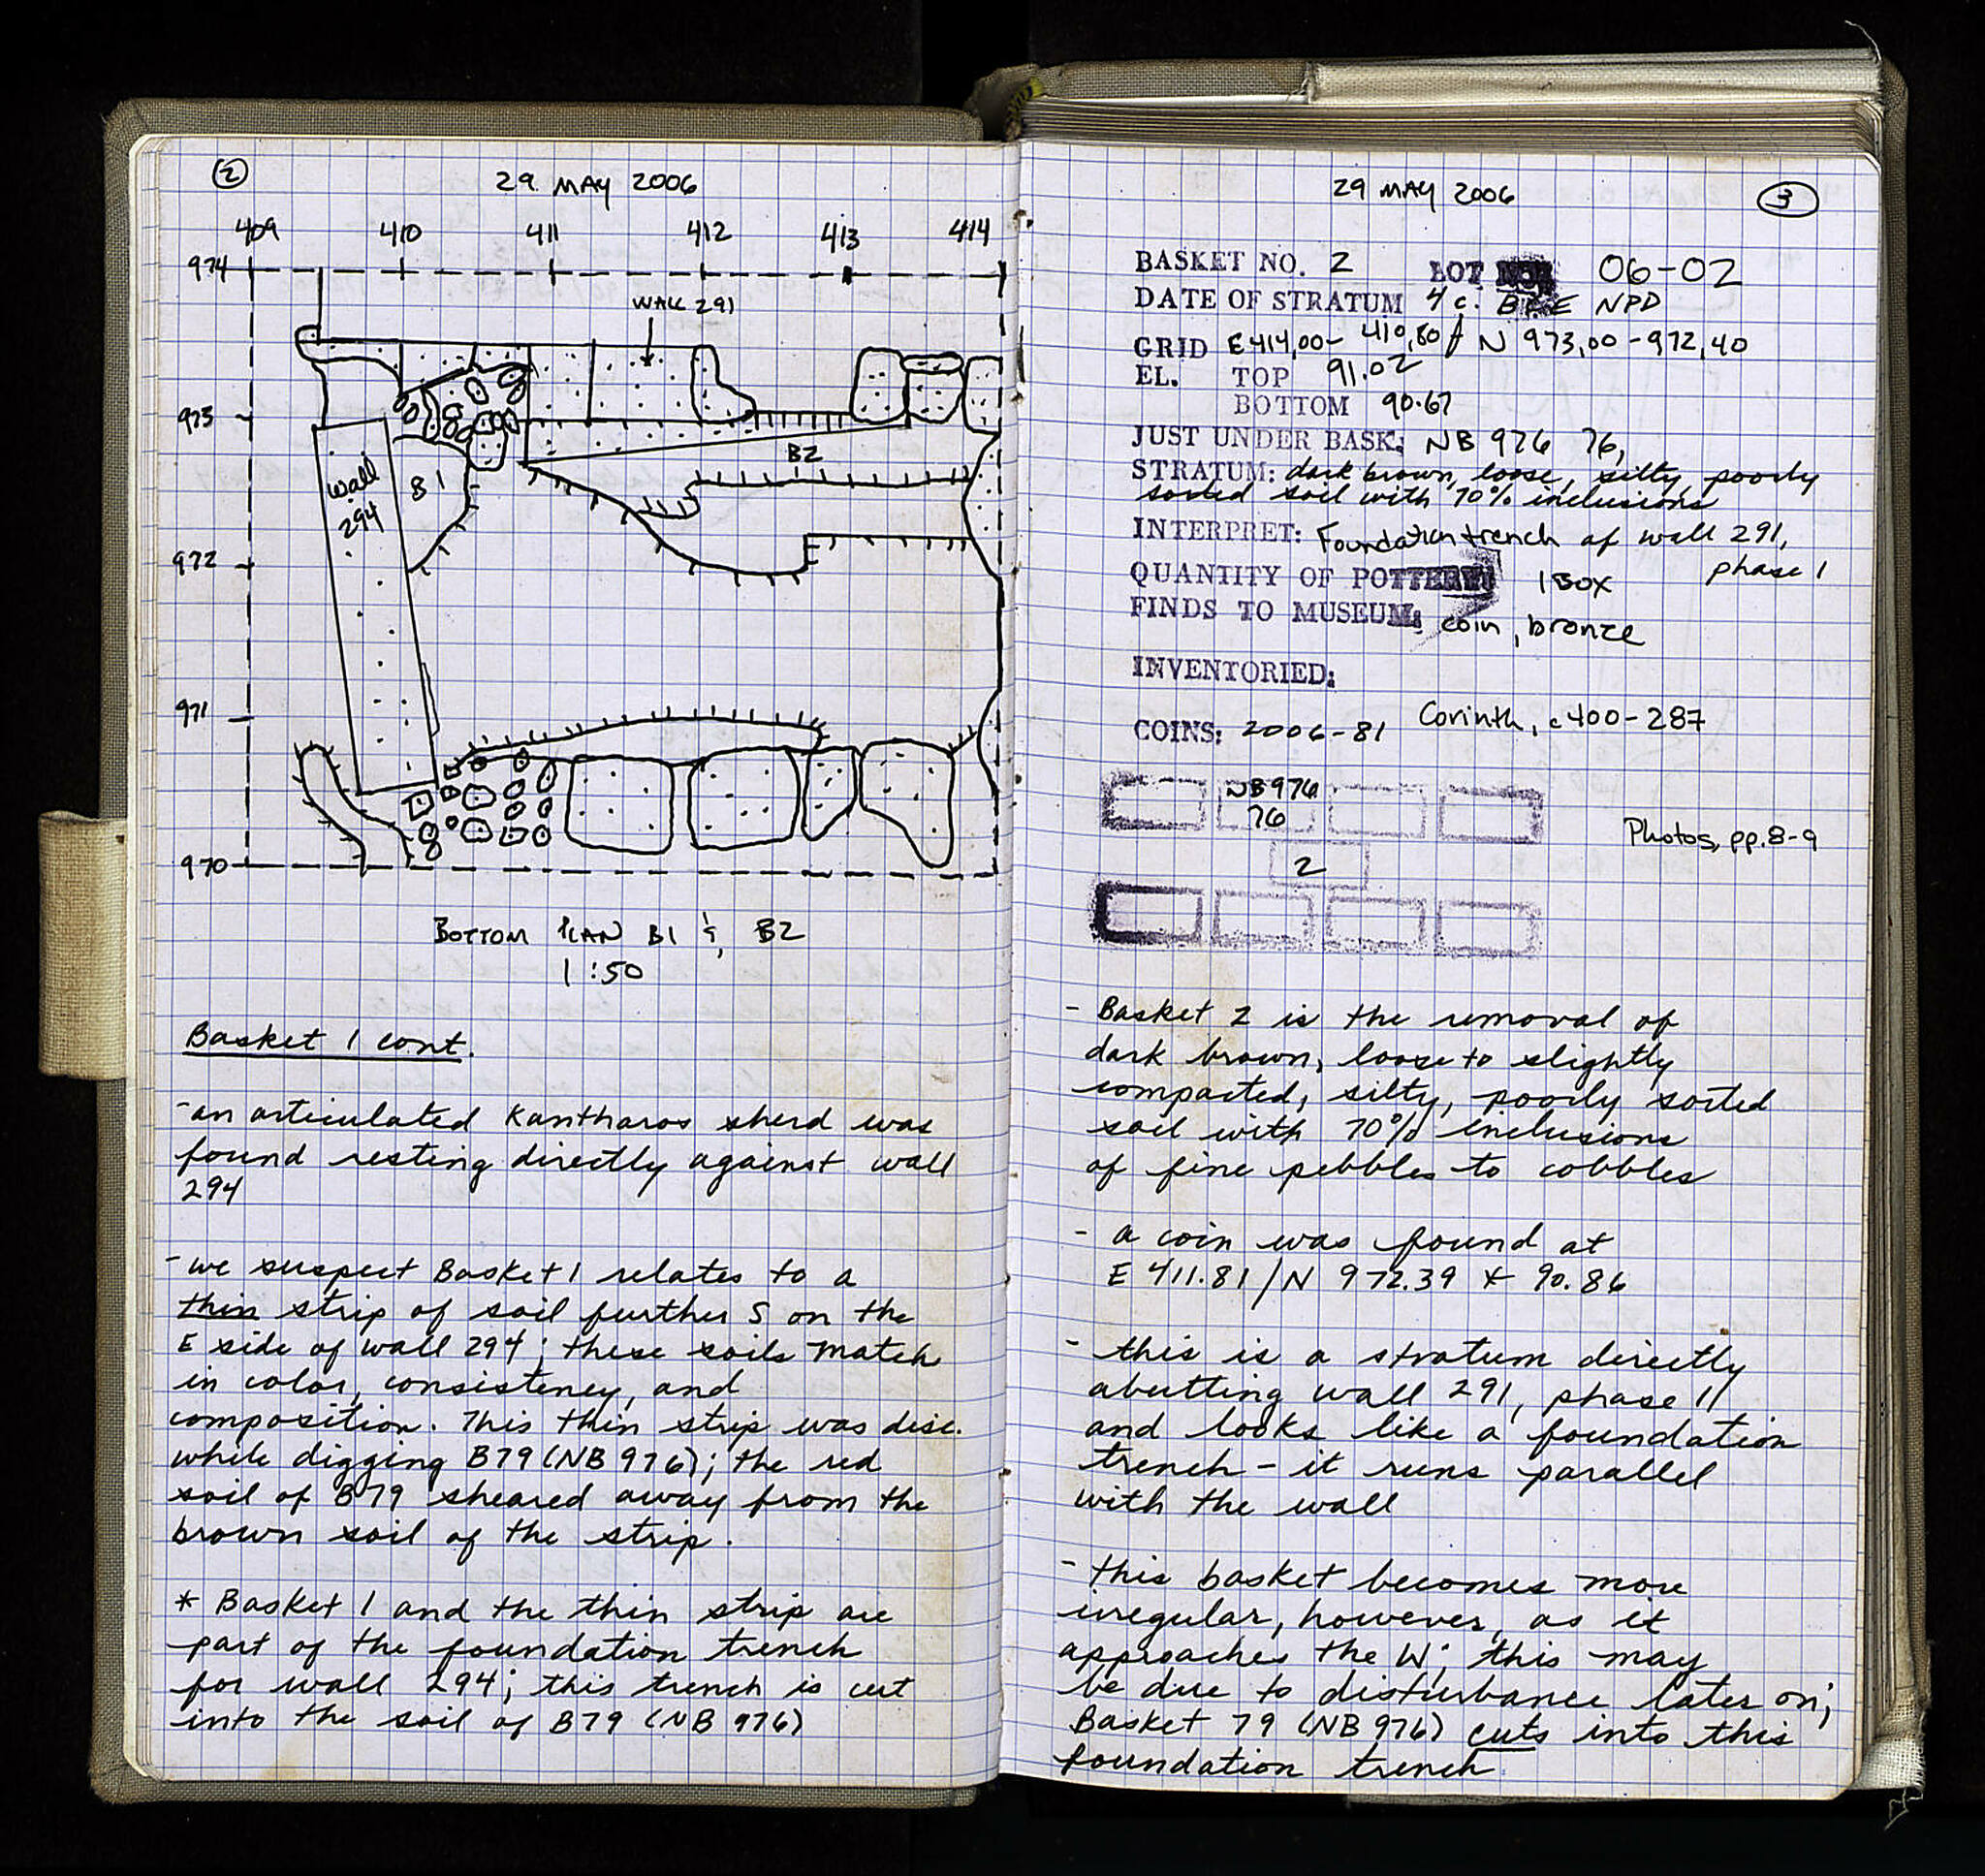 2
29 MAY 2006
409 410 411 412 413 414
974
WALL 291
973
B2
wall
294
B1
972
971
970
BOTTOM PLAN B1 & B2
1:50
Basket 1 cont.
- an articulated Kantharos sherd was
found resting directly against wall
294
- we suspect Basket 1 relates to a
thin strip of soil further S on the
E side of wall 294; these soils match
in color, consistency, and
composition. This thin strip was disc.
while digging B79 (NB 976); the red
soil of B79 sheared away from the
brown soil of the strip.
* Basket 1 and the thin strip are
part of the foundation trench
for wall 294; this trench is cut
into the soil of B79 (NB 976)
29 MAY 2006
3
BASKET NO. 2 LOT 06-02
DATE OF STRATUM 4 c. BCE NPD
GRID E414,00- 410,80 / N 973,00-972,40
EL. TOP 91.02
BOTTOM 90.67
JUST UNDER BASK: NB 976 76,
STRATUM: dark brown, loose, silty, poorly
sorted soil with 70% inclusions
INTERPRET: Foundation trench of wall 291,
phase 1
QUANTITY OF POTTERY: 1 BOX
FINDS TO MUSEUM: coin, bronze
INVENTORIED:
COINS: 2006-81 Corinth, c 400-287
NB976
76
Photos, pp. 8-9
2
- Basket 2 is the removal of
dark brown, loose to slightly
compacted, silty, poorly sorted
soil with 70% inclusions
of fine pebbles to cobbles
- a coin was found at
E 411.81/N 972.39 * 90.86
- this is a stratum directly
abutting wall 291, phase 1
and looks like a foundation
trench - it runs parallel
with the wall
- this basket becomes more
irregular, however, as it
approaches the W; this may
be due to disturbance later on;
Basket 79 (NB 976) cuts into this
foundation trench